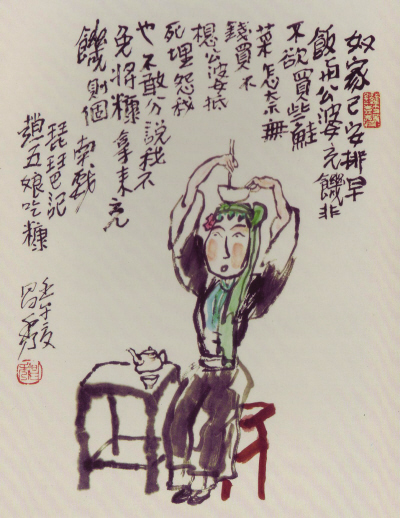 奴家已安排早
飯與公婆充饑非
不欲買些鮭
菜怎奈無
錢買不
想公婆抵
死埋怨我
也不敢分說我不
免將糠拿來充
饑則個
南戲
琵琶記
趙五娘吃糠
壬午夏